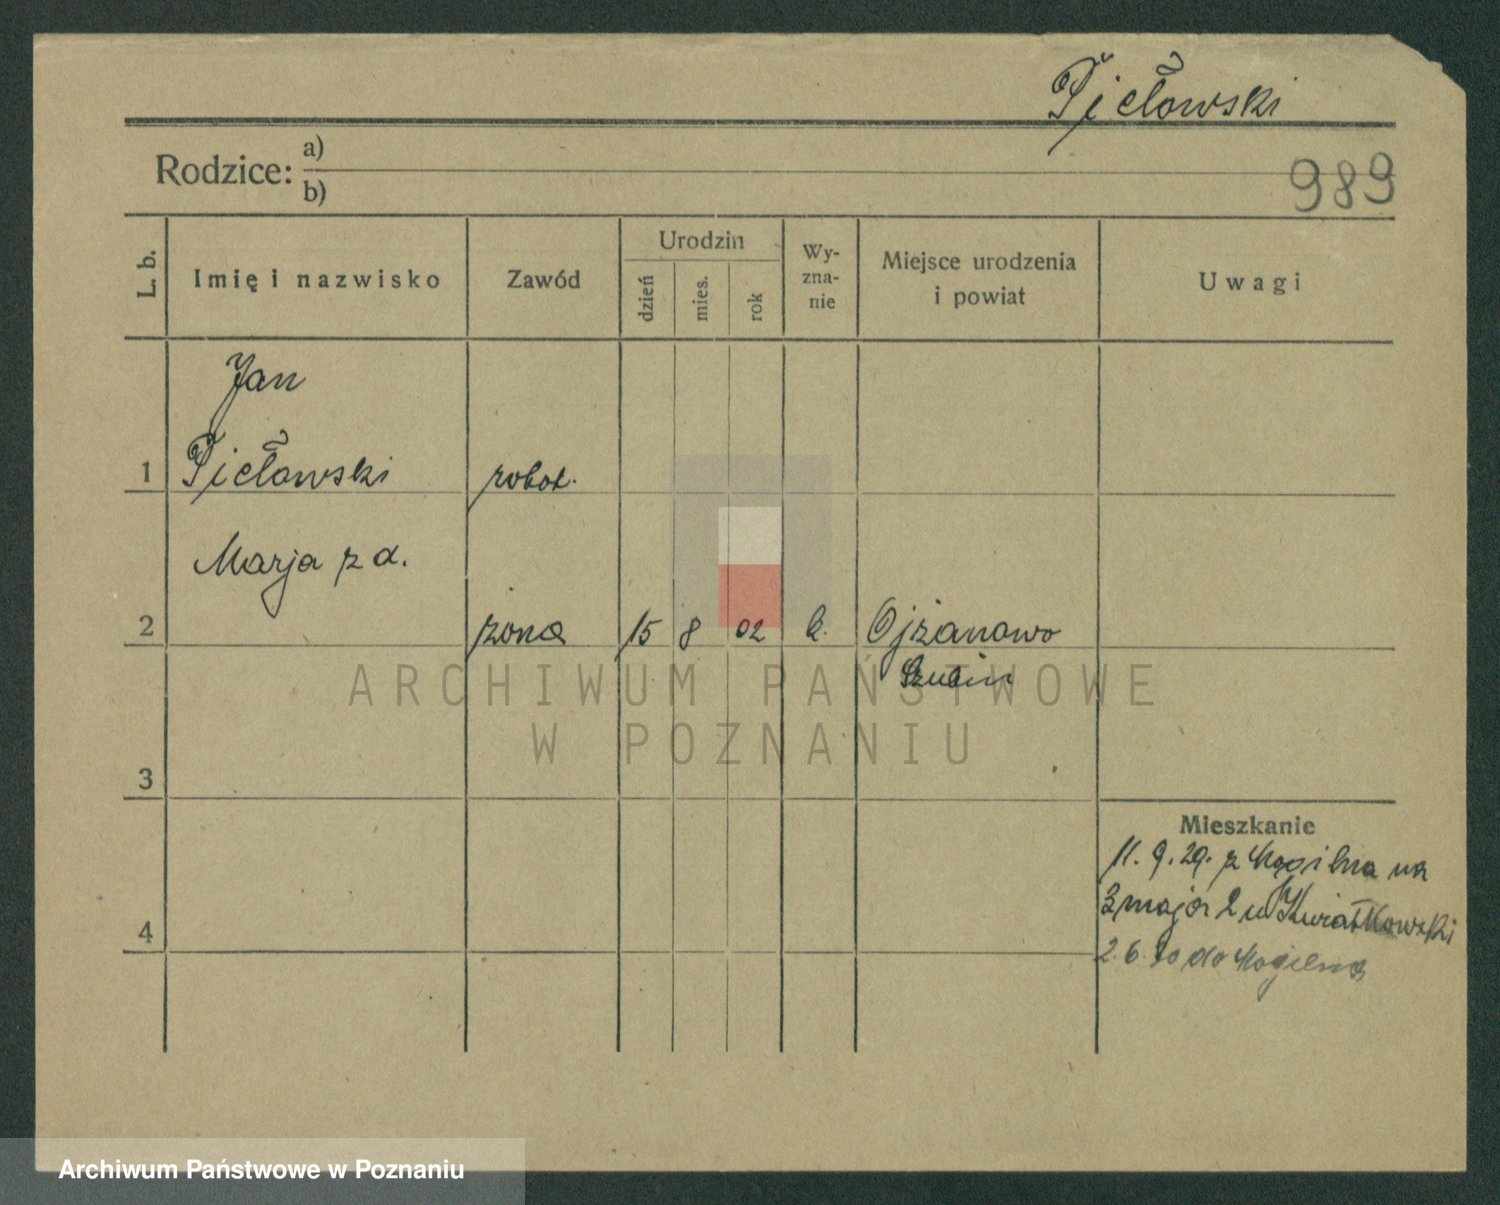 Pjełowski
Rodzice: a)
b)
989
L. b.
Imię i nazwisko
Zawód
Urodzin
dzień
mies.
rok
Wy-
zna-
nie
Miejsce urodzenia
i powiat
Uwagi
Jan
1 Pjełowski robot.
Marja z d.
2 żona 15 8 02 k.
Szubin
3
Mieszkanie
11. 9. 29. z Mogilna na
3 maja 2 u Kwiatkowski
4
2. 6. 30 do Mogilna
ARCHIWUM PAŃSTWOWE
W POZNANIU
Archiwum Państwowe w Poznaniu